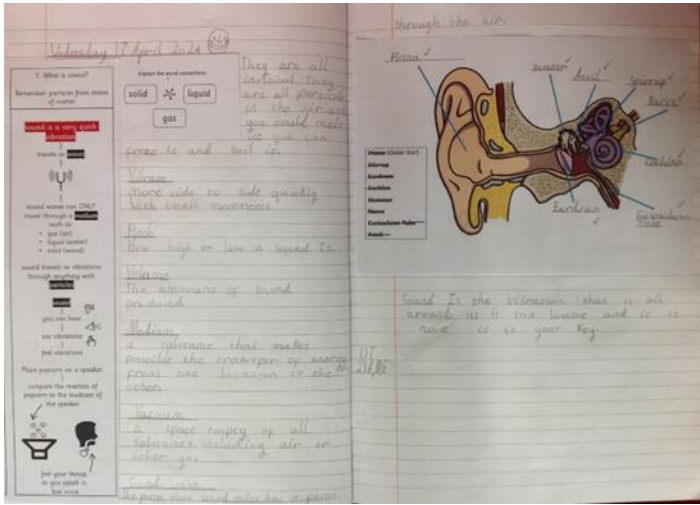 Wednesday 17 April 2024
1. What is sound?
Remember particles from states
of matter
sound is a very quick
vibration
travels as waves
sound waves can ONLY
travel through a medium
such as:
• gas (air)
• liquid (water)
• solid (wood)
sound travels as vibrations
through anything with
particles
sound
you can hear
see vibrations
feel vibrations
Place popcorn on a speaker
compare the reaction of
popcorn to the loudness of
the speaker
feel your throat
as you speak in
low voice
Explain the word connections.
solid
liquid
gas
They are all
material they
are all particles
in the air and
you could melt
it you can
and boil it.
Vibrate
move side to side quickly
with small movements.
Pitch
How high or low a sound Is.
Volume
The ammount of sound
produced
Medium
a substance that makes
possible the transfer of energy
from one location to the
other
Vacuum
a space empty of all
substances including air or
other gas
Sound wave
through the air.
Pinna
Hammer
Anvil
Stirrup
Nerve
Cochlea
Eustachian
Tube
Eardrum
Pinna (Outer Ear)
Stirrup
Eardrum
Cochlea
Hammer
Nerve
Eustachian Tube
Anvil
Sound Is the vibration that is all
around us it can bounce and it is
it is your key.